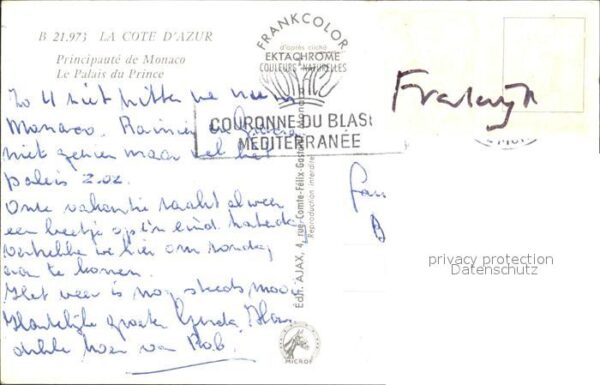 B 21.973 LA COTE D'AZUR
Principauté de Monaco
Le Palais du Prince
FRANKCOLOR
d'après cliché
EKTACHROME
COULEURS NATURELLES
COURONNE DU BLAS
MÉDITERRANÉE
Zo U ziet zitten we nu in
Monaco. Rainier en Gracia
niet gezien maar wel het
paleis z.oz.
Onze vakantie raakt alweer
een beetje op z'n eind. Zaterdag
vertrekken we hier om zondag
aan te komen.
Het weer is nog steeds mooi
Hartelijke groeten Gerda, Hans
dikke zoen van Rob.
Édit. AJAX, 4, rue Comte-Félix-Gastaldi
Reproduction interdite
Fam
B
MICROF
privacy protection
Datenschutz